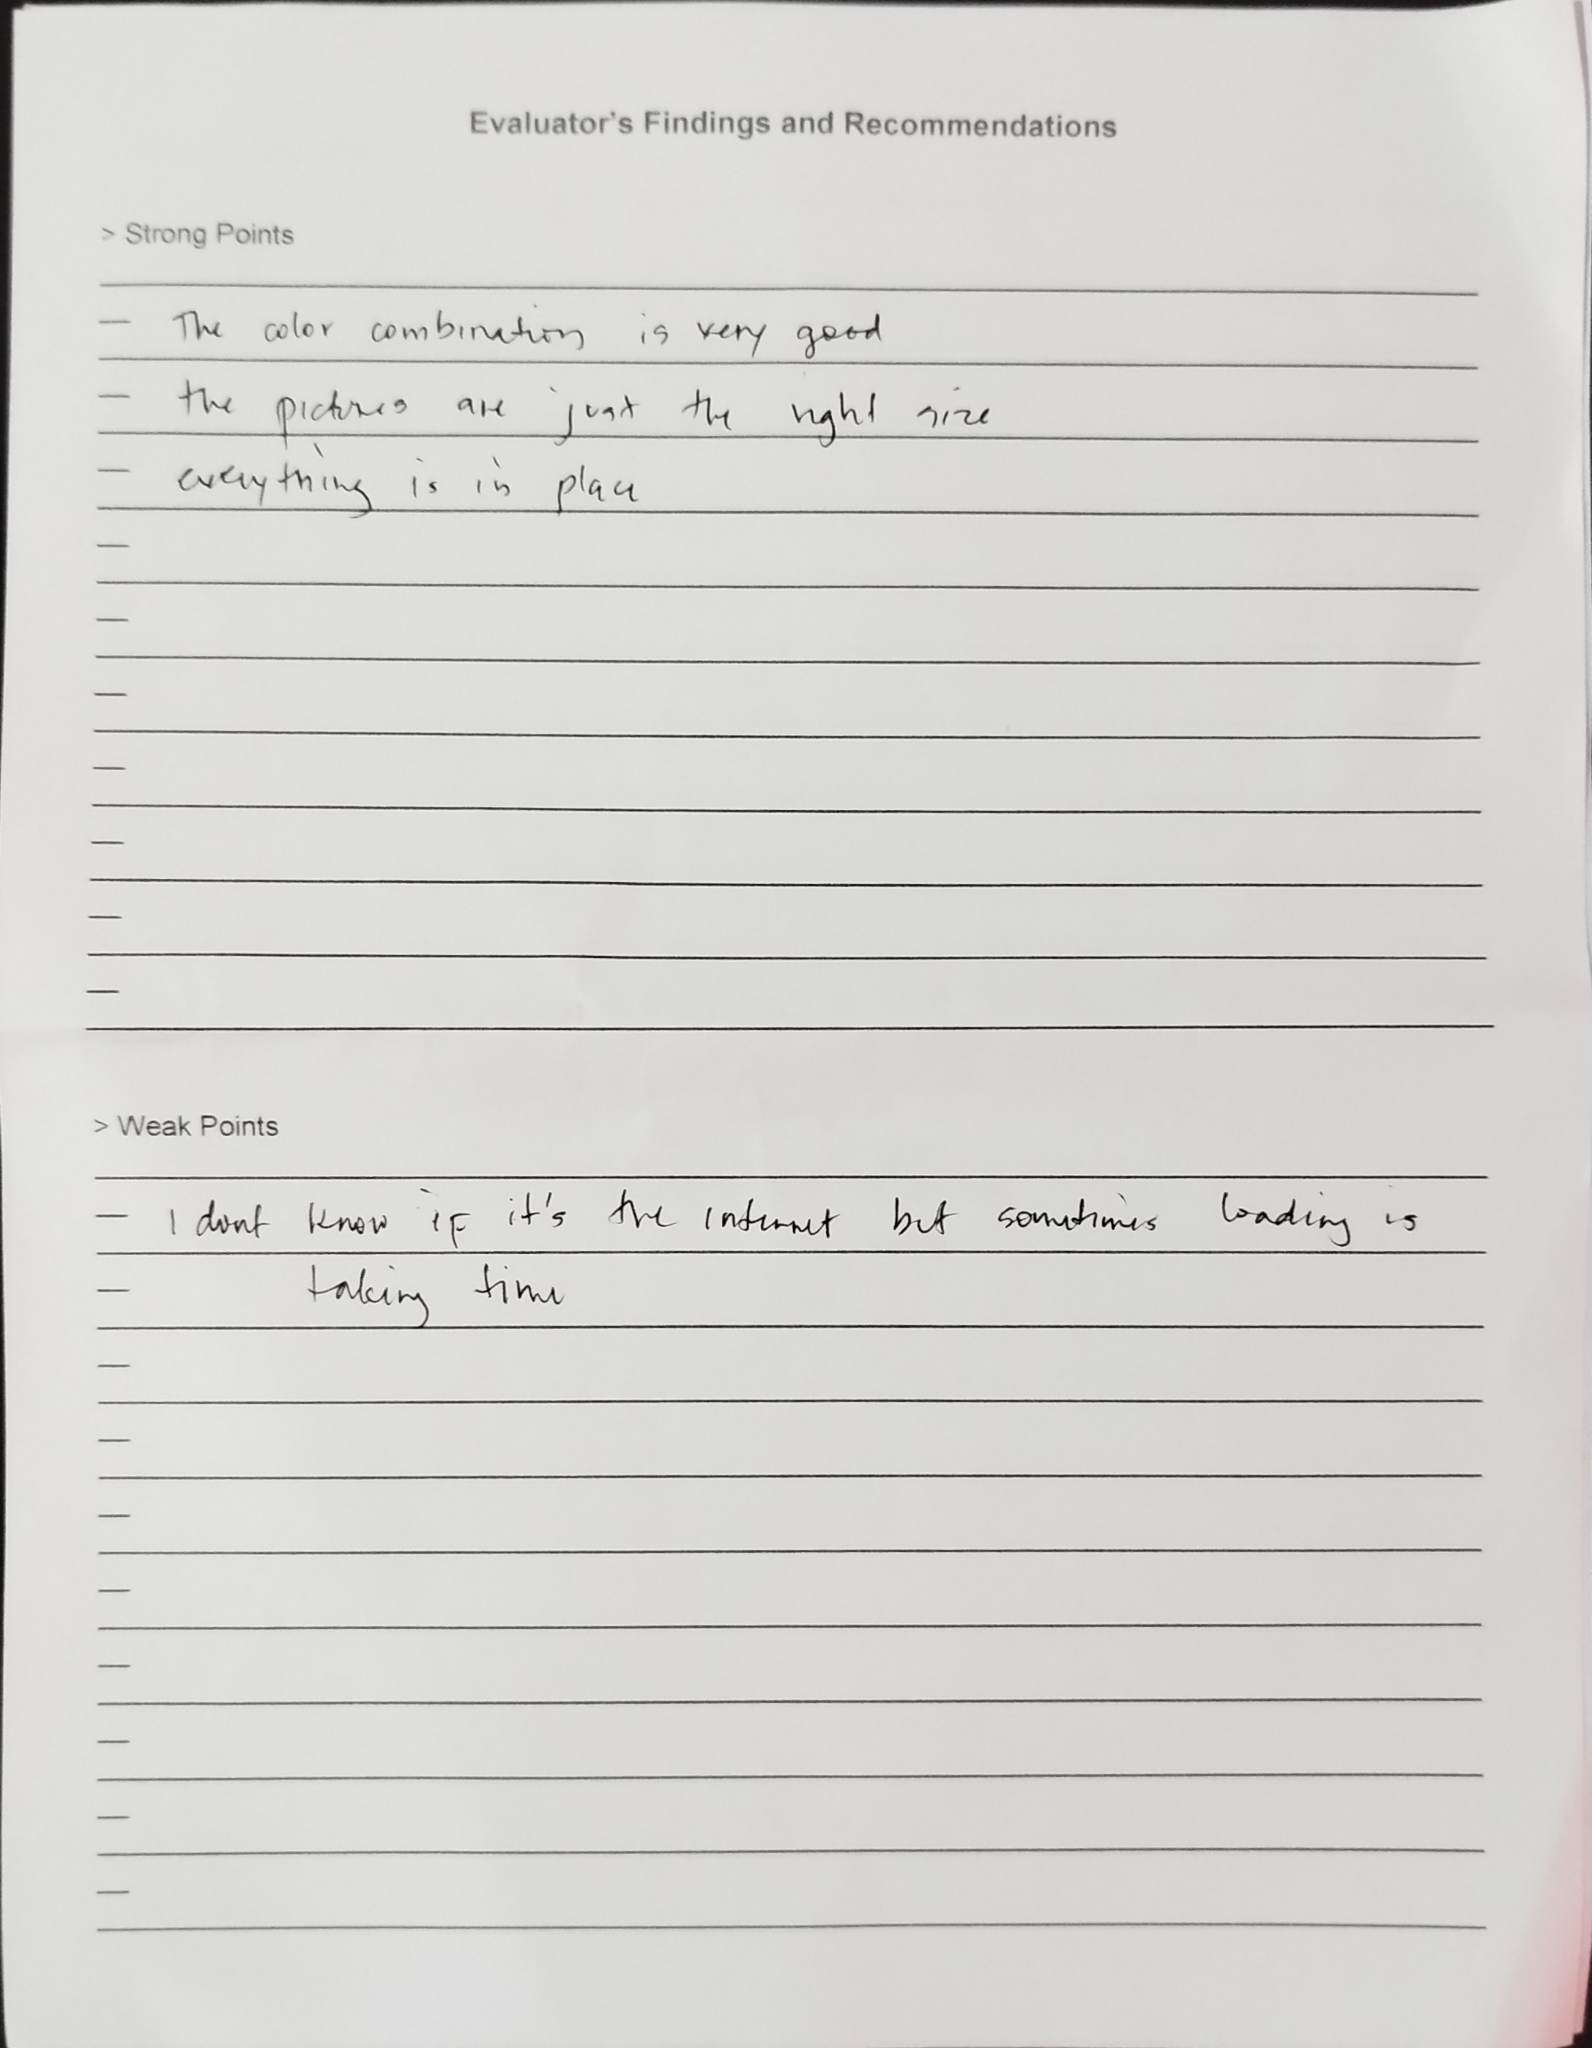 Evaluator's Findings and Recommendations
> Strong Points
— The color combination is very good
— the pictures are just the right size
— everything is in place
—
—
—
—
—
—
—
> Weak Points
— I dont know if it's the internet but sometimes loading is
— taking time
—
—
—
—
—
—
—
—